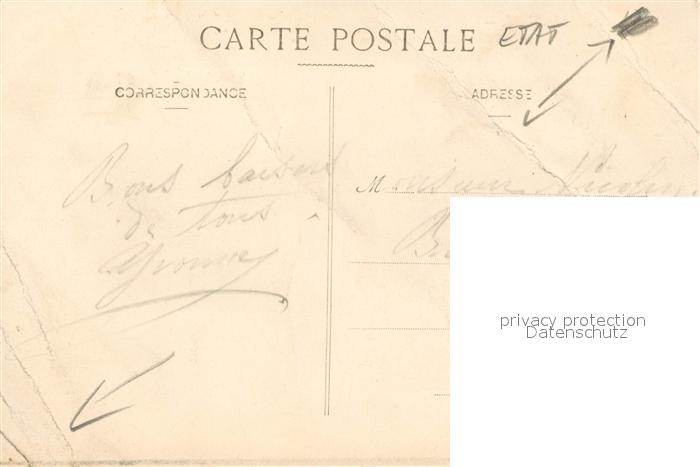 CARTE POSTALE ETAT
CORRESPONDANCE
ADRESSE
Bons baisers
de tous
Yvonne
Monsieur Nicolas
privacy protection
Datenschutz